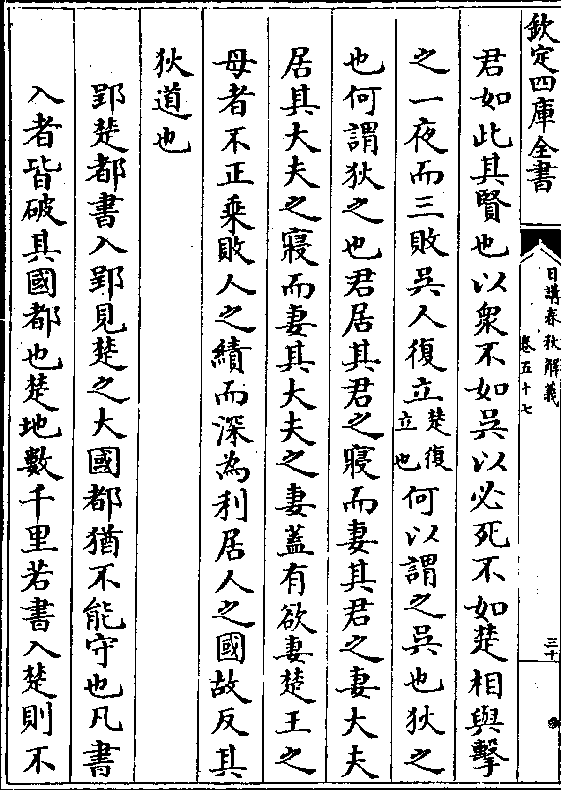 欽定四庫全書
日講春秋解義
卷五十七
三十
君如此其賢也以衆不如吳以必死不如楚相與擊
之一夜而三敗吳人復立楚復立也何以謂之吳也狄之
也何謂狄之也君居其君之寢而妻其君之妻大夫
居其大夫之寢而妻其大夫之妻蓋有欲妻楚王之
母者不正乘敗人之績而深為利居人之國故反其
狄道也
郢楚都書入郢見楚之大國都猶不能守也凡書
入者皆破其國都也楚地數千里若書入楚則不